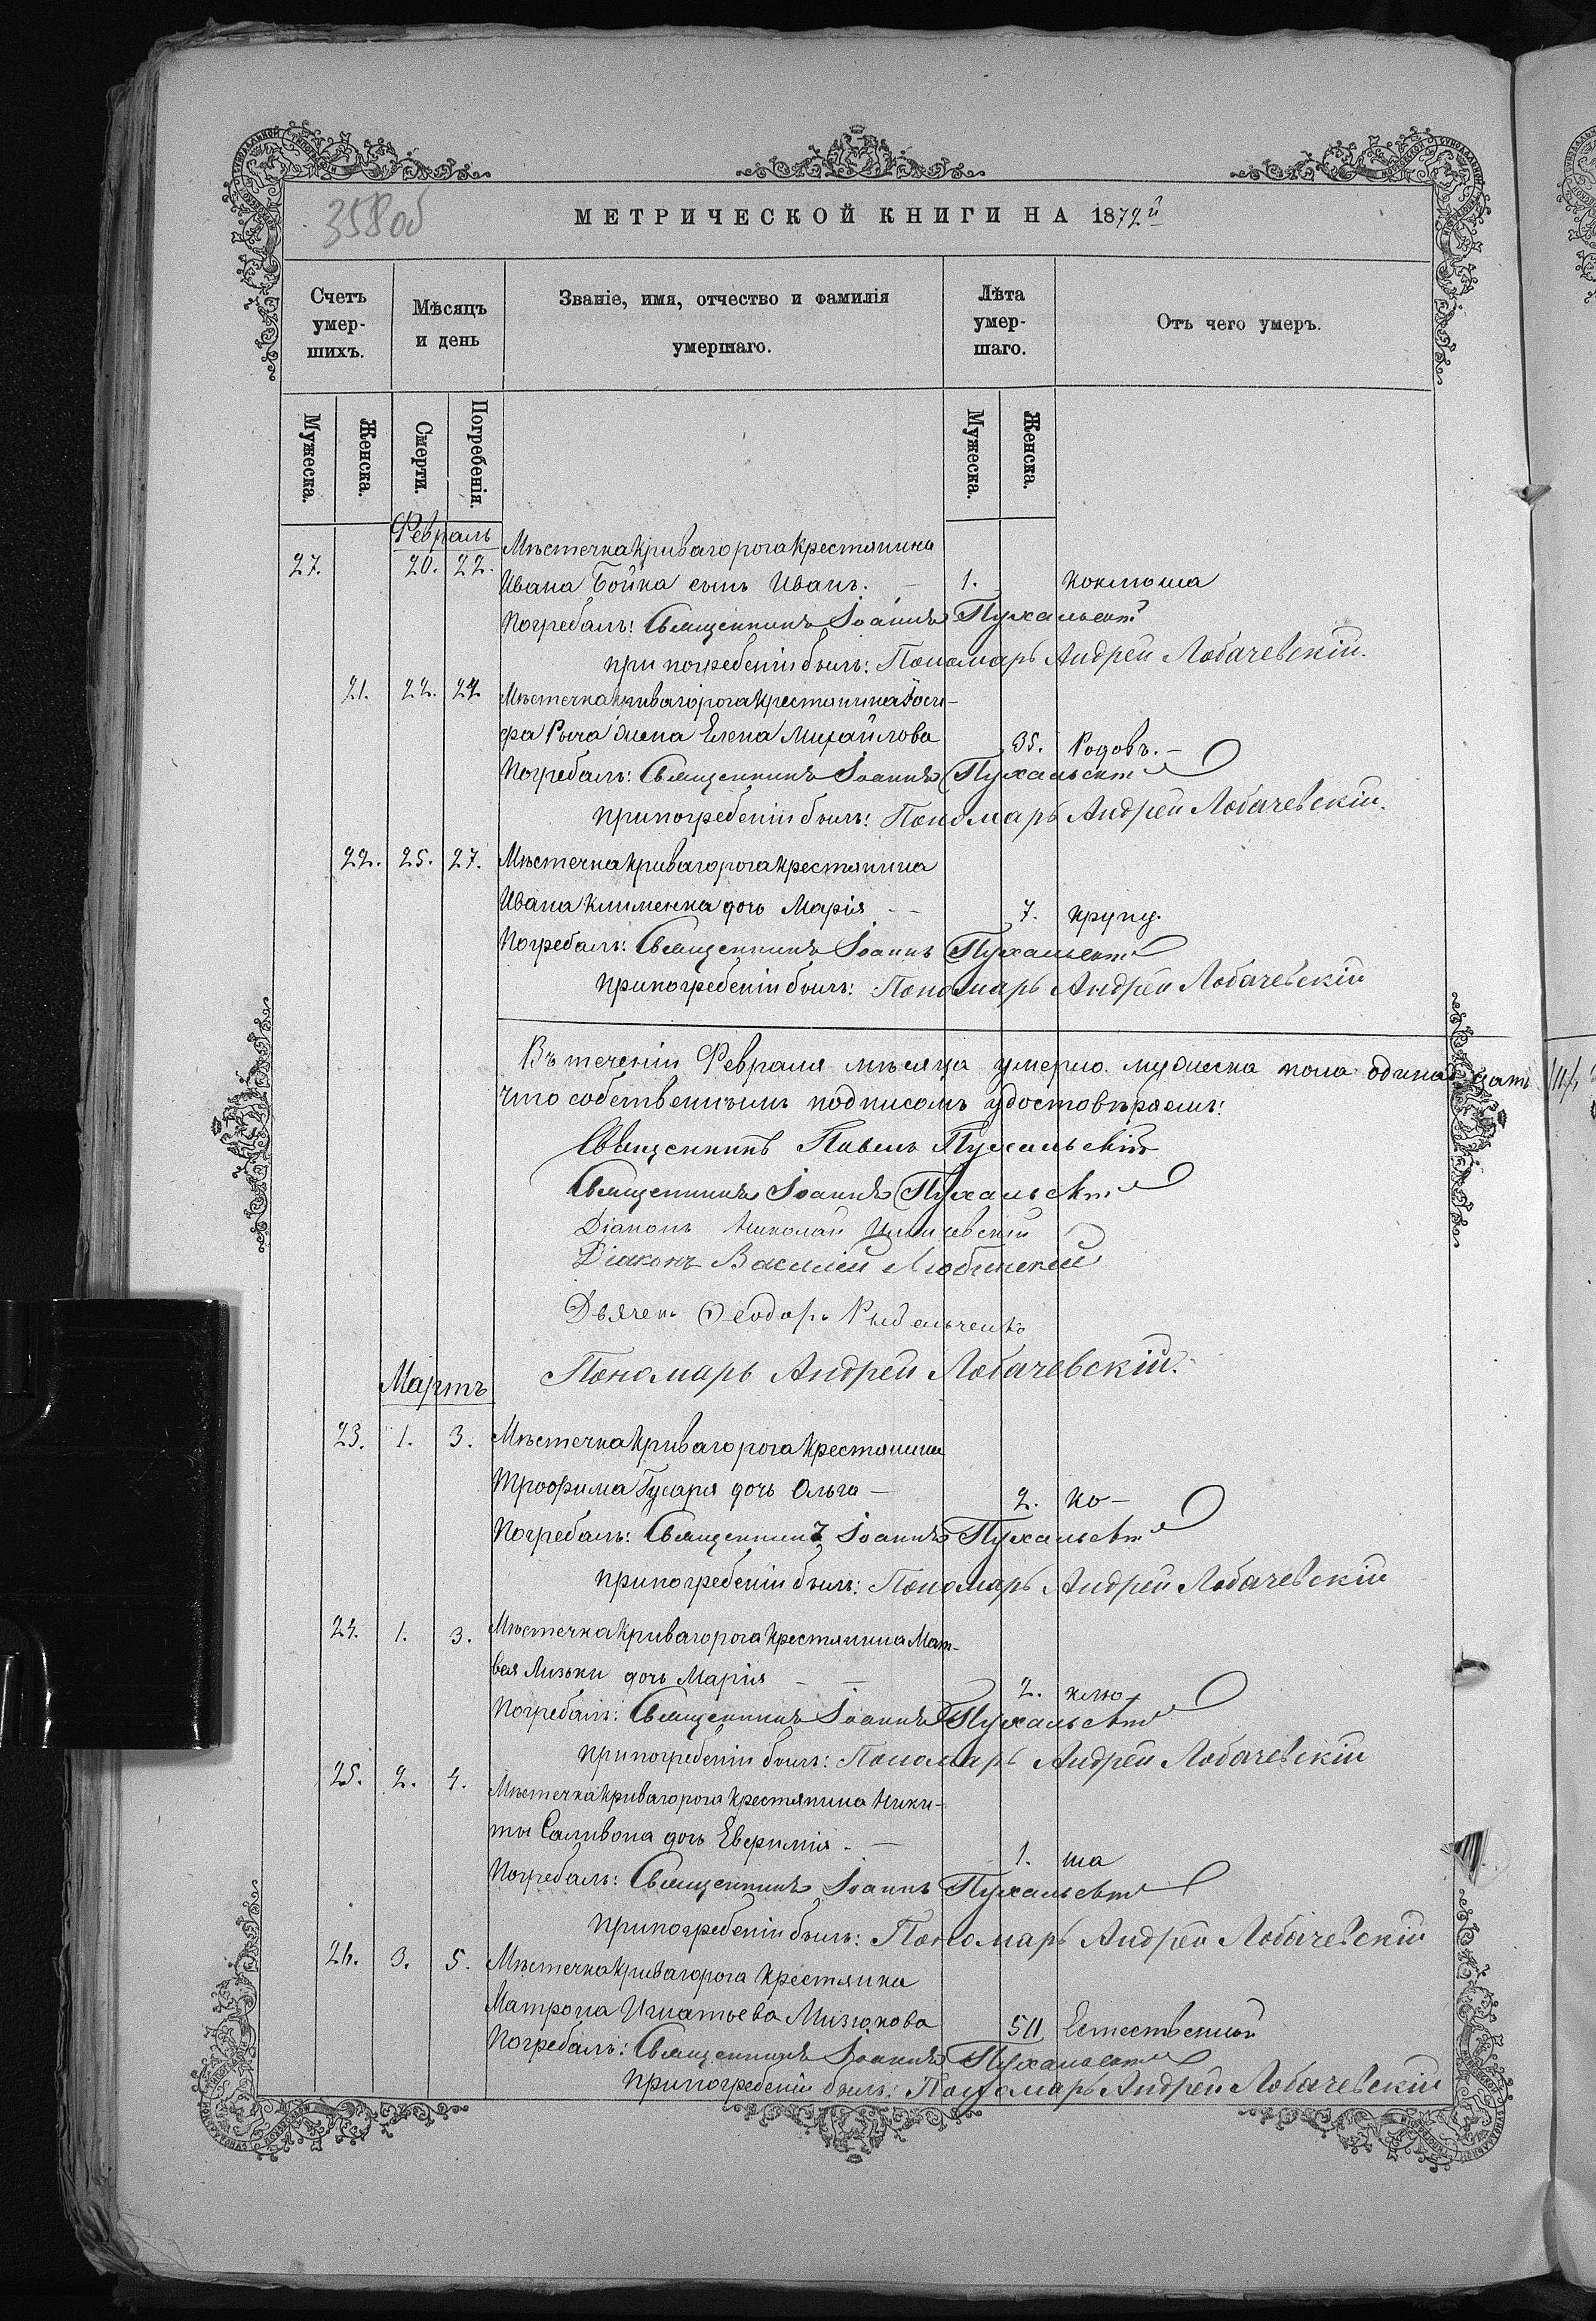 358 об
МЕТРИЧЕСКОЙ КНИГИ НА 1872й
Счетъ умер-шихъ.
Мѣсяцъ и день
Званіе, имя, отчество и фамилія умершаго.
Лѣта умер-шаго.
Отъ чего умеръ.
Мужеска.
Женска.
Смерти.
Погребенія.
Мужеска.
Женска.
Февраль
27. 20. 22. Мѣстечка Криваго рога Крестянина
Ивана Бойка сынъ Иванъ. 1. Коклюша
Погребалъ: Священникъ Іоаннъ Пухальскій
при погребеніи былъ: Пономарь Андрей Лобачевскій.
21. 22. 24 Мѣстечка Криваго рога Крестянина Іоси-
фа Рыча жена Елена Михайлова 35. Родовъ.
Погребалъ: Священникъ Іоаннъ Пухальскій
при погребеніи былъ: Пономарь Андрей Лобачевскій.
22. 25. 27. Мѣстечка Криваго рога Крестянина
Ивана Клименка дочь Марія 7. Крупу.
Погребалъ: Священникъ Іоаннъ Пухальскій
при погребеніи былъ: Пономарь Андрей Лобачевскій
Въ теченіи Февраля мѣсяца умерло мужеска пола одинадцать
Что собственнымъ подписомъ удостовѣряемъ:
Священникъ Павелъ Пухальскій
Священникъ Іоаннъ Пухальскій
Діаконъ Николай
Діаконъ Василій Любинскій
Дьячекъ Ѳеодоръ
Пономарь Андрей Лобачевскій.
Мартъ
23. 1. 3. Мѣстечка Криваго рога Крестянина
Трофима Гусаря дочь Ольга 2. Ко-
Погребалъ: Священникъ Іоаннъ Пухальскій
при погребеніи былъ: Пономарь Андрей Лобачевскій
24. 1. 3. Мѣстечка Криваго рога Крестянина Мат-
вея Лизьки дочь Марія 2. клю-
Погребалъ: Священникъ Іоаннъ Пухальскій
при погребеніи былъ: Пономарь Андрей Лобачевскій
25. 2. 4. Мѣстечка Криваго рога Крестянина Ники-
ты Саливона дочь 1. ша
Погребалъ: Священникъ Іоаннъ Пухальскій
при погребеніи былъ: Пономарь Андрей Лобачевскій
26. 3. 5. Мѣстечка Криваго рога Крестянка
Матрона Игнатьева Мизюкова Естественной
Погребалъ: Священникъ Іоаннъ Пухальскій
при погребеніи былъ: Пономарь Андрей Лобачевскій